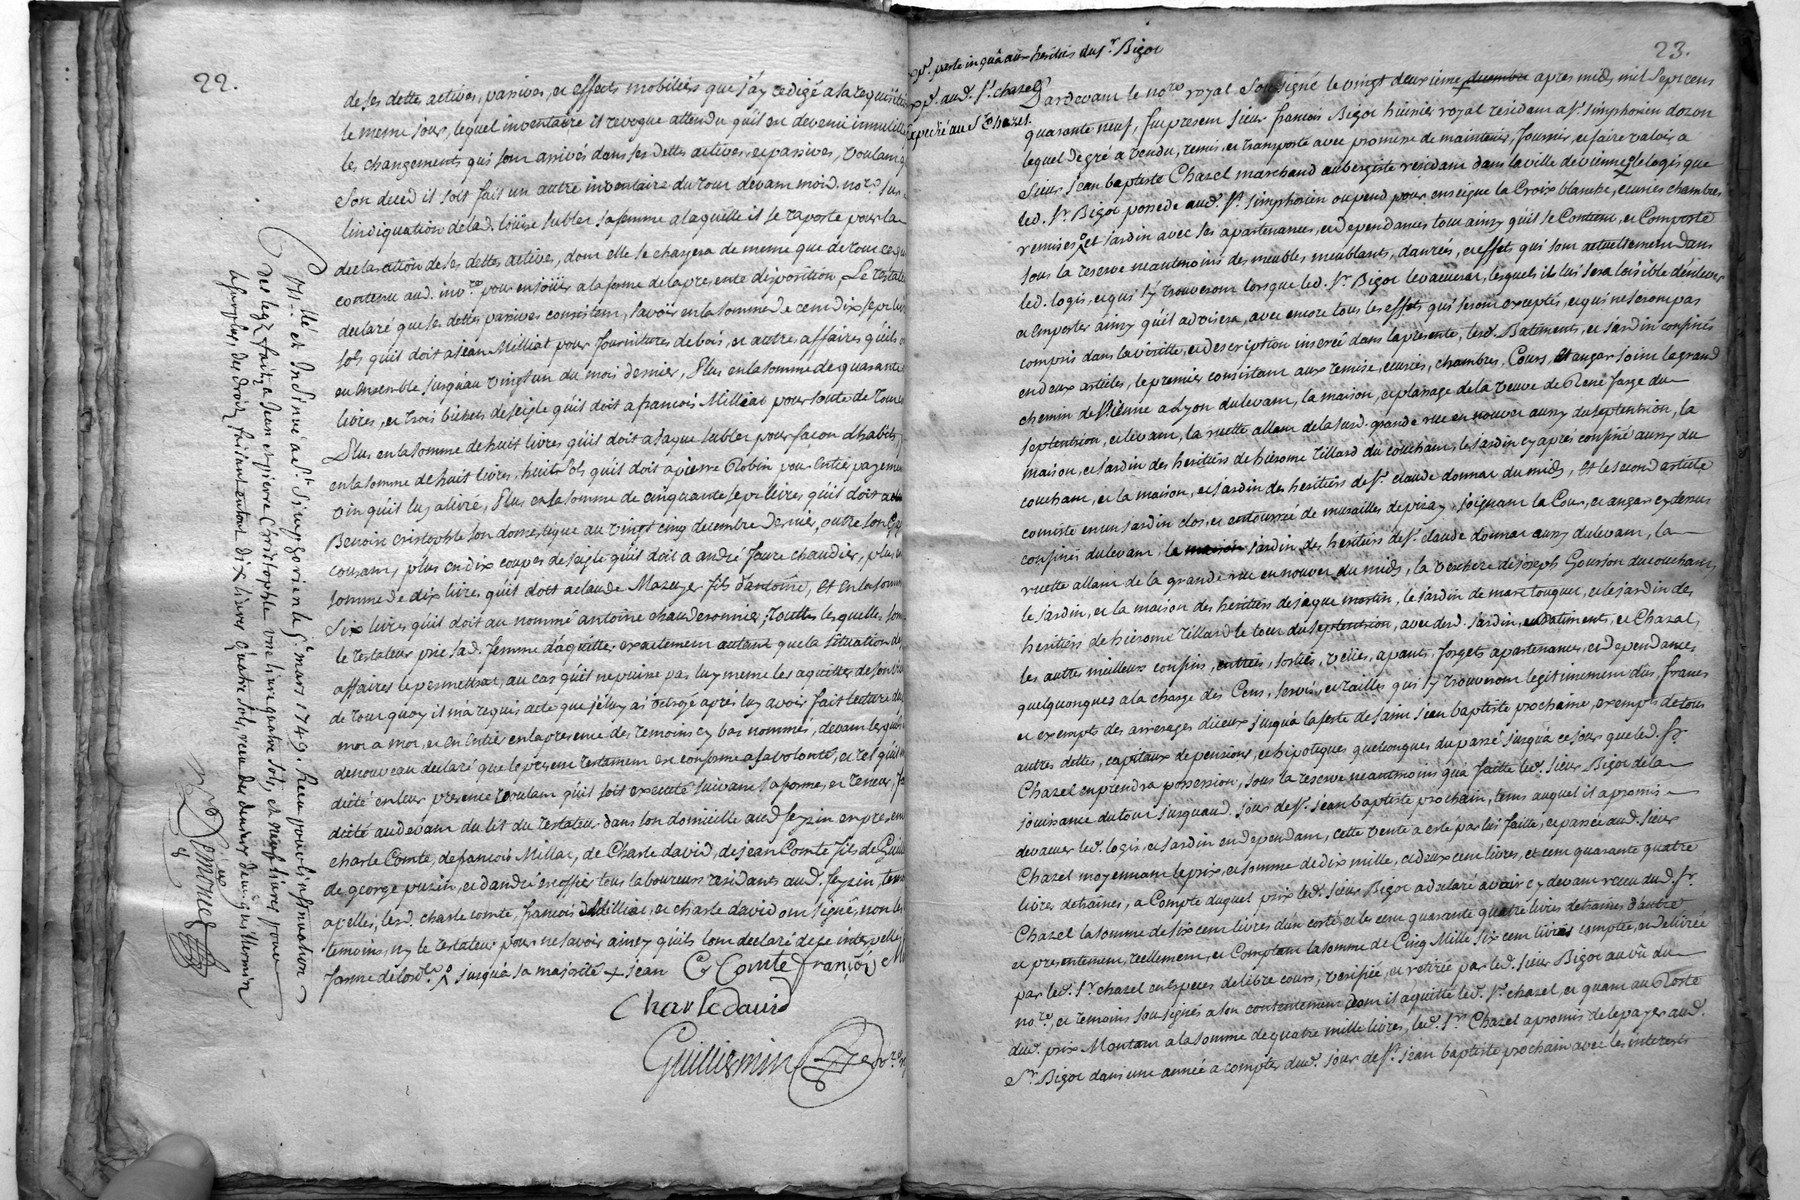 22.
de ses dette actives, passives, et effects mobiliers que j'ay redigé a sa requisition
le meme jour, lequel inventaire il revoque attendu qu'il est devenu innutille
les changements qui sont arrivés dans ses dettes actives et passives, voulant q
son deced il soit fait un autre inventaire du tout devant moid. nore sur
l'indiquation de lad. loüise sublet sa femme a laquelle il se raporte pour la
declaration de ses dettes actives, dont elle se chargera de meme que de tout ce qui
contenu aud. invre pour en joüir a la forme de la presente disposition, Le testate
declaré que ses dettes passives consistent, savoir en la somme de cent dix sept livre
sols qu'il doit a Jean Milliat pour fournitures de bois, et autres affaires qu'ils o
eu ensemble jusqu'au vingt un du mois dernier, Plus en la somme de quarante
livres, et trois bichets de seigle qu'il doit a francois Milliat pour soute de tout
Plus en la somme de huit livres qu'il doit a Jaque sublet pour façon d'habits,
en la somme de huit livres, huit sols qu'il doit a pierre Robin pour entié payement
vin qu'il luy a livré, Plus en la somme de cinquante sept livres qu'il doit a
Benoit cristophle son domestique au vingt cinq decembre dernier, outre son
courant, plus en dix coupes de seigle qu'il doit a andré faure chaudier, plus en
somme de dix livres qu'il doit a claude Mazuze fils d'antoine, et en la somme
six livres qu'il doit au nommé antoine chauderonnier; Toutes lesquelles som
le testateur prie sad. femme d'aquitter exactement autant que la situation de
affaires le permettrat, au cas qu'il ne puisse pas luy meme les aquitter de son viv
de tout quoy il m'a requis acte que je luy ai octroyé aprés luy avoir fait lecture du
mot a mot, et en entier en la presence des temoins cy bas nommés, devant lesquels
de nouveau declaré que le present testament est conforme a sa volonté, et tel qu'il
dicté en leur presence voulant qu'il soit executé suivant sa forme, et teneur, f
dicté au devant du lit du testateur dans son domicille aud feyzin en presence
charle Comte, de francois Millat, de Charle david, de jean Comte fils de Guill
de george puzin, et d'andré escoffier tous laboureurs residants aud. feyzin, temo
apellés; lesd. charle comte, francois Milliat, et charle david ont signé, non les
temoins, ny le testateur pour ne savoir ainsy qu'ils l'ont declaré de ce interpellés
forme de l'ordce jusqu'à sa majorité + jean C Comte françois M
Charle david
Guilliermin nore
Cllé et Insinué a St Simphorien le 5e mars 1749. Receu pour l'insinuation
des legs faits a Jean et pierre Cristophle une livre quatre sols, et neuf livres pour
le surplus des droits, faisant en tout dix livres quatre sols, receu des deniers dem. guilliermin
Demone
23.
xpé. parle in quâ aux heritiers du sr. Bigot
xpé. aud. sr. chazel
Expedié au sr Chazel
Pardevant le nore royal soussigné le vingt deuxieme decembre aprés midy mil sept cens
quarante neuf, fut present sieur francois Bigot huissier royal residant a st. simphorien dozon
lequel de gré a vendu, remis, et transporté avec promesse de maintenir, fournir, et faire valoir a
sieur jean baptiste Chazel marchand aubergiste residant dans la ville de vienne, le logis que
led. sr. Bigot possede aud. st. simphorien ou pend pour enseigne la Croix blanche, ecuries chambres
remises et jardin avec ses apartenances, et dependances tout ainsy qu'il se Contient, et Comporte
sous la reserve neantmoins des meubles meublants, danrées, et effets qui sont actuellement dans
led. logis, et qui s'y trouveront lorsque led. sr. Bigot le vacuerat, lesquels il lui sera loisible d'enlever
et emporter ainsy qu'il advisera, avec encore tous les effets qui seront exceptés, et qui ne seront pas
compris dans la visitte, et description inserée dans la presente, lesd. Batiments, et jardin confinés
en deux articles, le premier consistant aux remise, ecuries, chambres, Cours, et angar joint le grand
chemin de Vienne a Lyon du levant, la maison, et plassage de la veuve de René farge du
septentrion, et levant, la ruette allant de la susd. grande rue en nouvet aussy du septentrion, la
maison, et jardin des heritiers de hierome Tillard du couchant, le jardin cy aprés confiné aussy du
couchant, et la maison, et jardin des heritiers de sr. claude donnat du midy, Et le second article
consiste en un jardin clos, et entourré de murailles de pizay joignant la Cour, et angar cy dessus
confinés du levant, le jardin des heritiers de sr. claude donnat aussy du levant, la
ruette allant de la grande rue en nouvet du midy, la verchere de joseph Gourson du couchant,
le jardin, et la maison des heritiers de jaque martin, le jardin de marc touquet, et le jardin des
heritiers de hierome Tillard le tout du septentrion, avec desd. jardin, et batiments, et Chazal,
les autres meilleurs confins, entrées, sorties, veües, apants, forgets apartenances, et dependances
quelquonques a la charge des Cens, servis, et tailles qui s'y trouveront legitimement dus, francs
et exempts des arrerages d'iceux jusqu'a la feste de saint jean baptiste prochaine, exempts de tous
autres dettes, capitaux de pensions, et hipoteques quelconques du passé jusqu'a ce jour que led. sr.
Chazel en prendra possession, sous la reserve neantmoins qu'a faitte led. sieur Bigot de la
jouissance du tout jusquaud. jour de st. jean baptiste prochain, tems auquel il a promis
de vacuer led. logis et jardin en dependant, cette vente a esté par lui faitte, et passée aud. sieur
Chazel moyennant le prix, et somme de dix mille, et deux cent livres, et cent quarante quatre
livres detraines, a compte duquel prix led. sieur Bigot a declaré avoir cy devant receu dud. sr.
Chazel la somme de six cent livres d'un costé, et les cent quarante quatre livres detraines d'autre
et presentement, reellement, et Comptant la somme de Cinq Mille six cent livres comptée, et delivrée
par led. sr. chazel en especes de libre cours, verifiée, et retirée par led. sieur Bigot au vû du
nore, et temoins soussignés a son contentement dont il a quitté led. sr. chazel, et quant au Reste
dud. prix Montant a la somme de quatre mille livres, led. sr. Chazel a promis de le payer aud.
sr. Bigot dans une année a compter dud. jour de st. jean baptiste prochain avec les interests